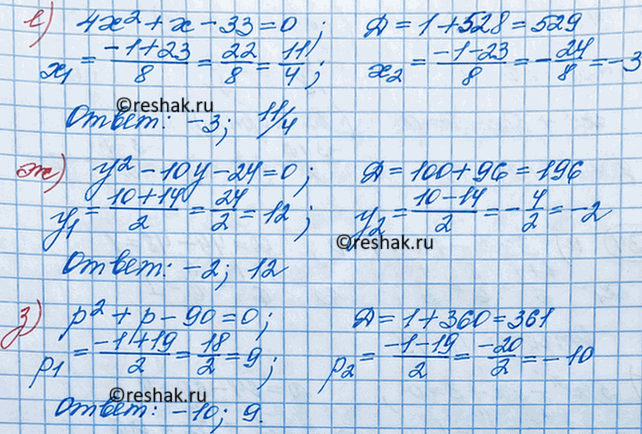 е) 4x² + x - 33 = 0; Д = 1 + 528 = 529
x₁ = (-1+23)/8 = 22/8 = 11/4; x₂ = (-1-23)/8 = -24/8 = -3
©reshak.ru
Ответ: -3; 11/4
ж) y² - 10y - 24 = 0; Д = 100 + 96 = 196
y₁ = (10+14)/2 = 24/2 = 12; y₂ = (10-14)/2 = -4/2 = -2
©reshak.ru
Ответ: -2; 12
з) p² + p - 90 = 0; Д = 1 + 360 = 361
p₁ = (-1+19)/2 = 18/2 = 9; p₂ = (-1-19)/2 = -20/2 = -10
©reshak.ru
Ответ: -10; 9.